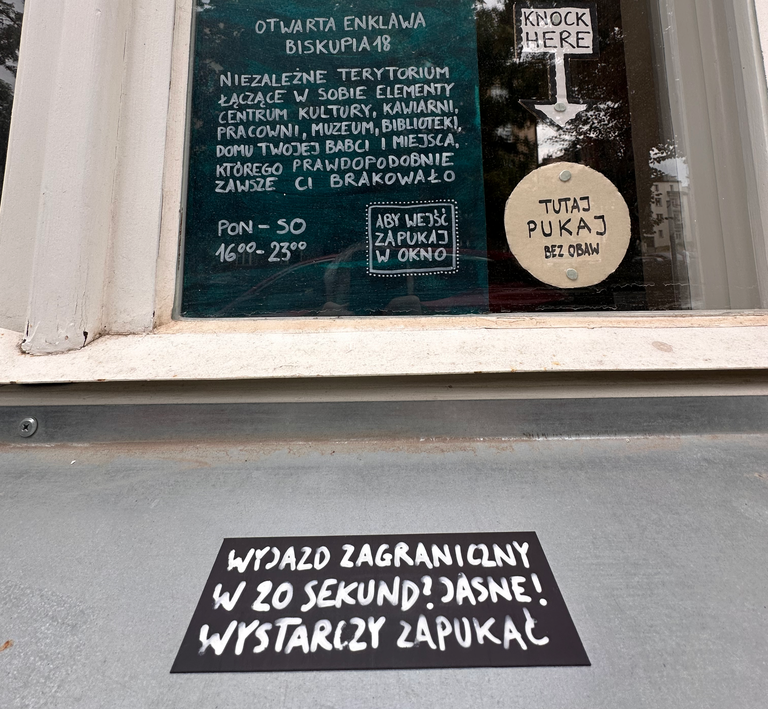 OTWARTA ENKLAWA
BISKUPIA 18
NIEZALEŻNE TERYTORIUM
ŁĄCZĄCE W SOBIE ELEMENTY
CENTRUM KULTURY, KAWIARNI,
PRACOWNI, MUZEUM, BIBLIOTEKI,
DOMU TWOJEJ BABCI I MIEJSCA,
KTÓREGO PRAWDOPODOBNIE
ZAWSZE CI BRAKOWAŁO
PON - SO
16⁰⁰ - 23⁰⁰
ABY WEJŚĆ
ZAPUKAJ
W OKNO
KNOCK
HERE
TUTAJ
PUKAJ
BEZ OBAW
WYJAZD ZAGRANICZNY
W 20 SEKUND? JASNE!
WYSTARCZY ZAPUKAĆ